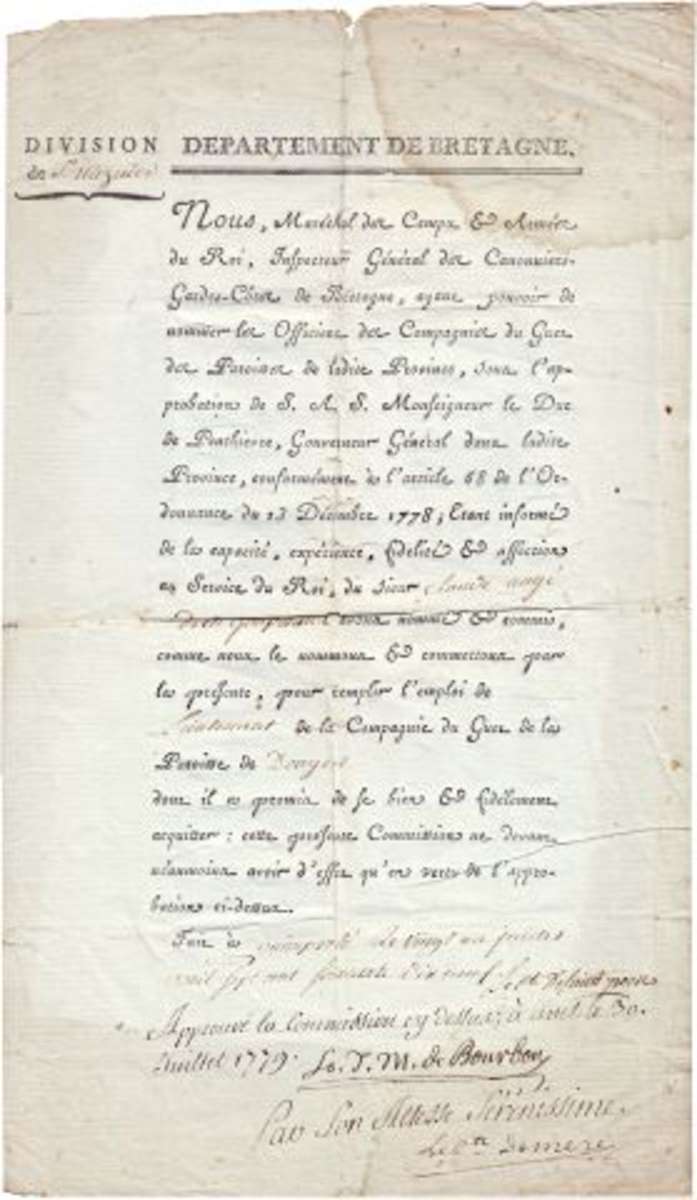 DIVISION DEPARTEMENT DE BRETAGNE.
de St Nazaire
Nous, Maréchal des Camps & Armées
du Roi, Inspecteur Général des Canonniers-
Gardes-Côtes de Bretagne, ayant pouvoir de
nommer les Officiers des Compagnies du Guet
des Paroisses de ladite Province, sous l'ap-
probation de S. A. S. Monseigneur le Duc
de Penthievre, Gouverneur Général dans ladite
Province, conformément à l'article 68 de l'Or-
donnance du 13 Décembre 1778; Etant informé
de la capacité, expérience, fidélité & affection
au Service du Roi, du sieur Claude
l'avons nommé & commis,
comme nous le nommons & commettons par
la présente, pour remplir l'emploi de
Lieutenant de la Compagnie du Guet de la
Paroisse de Donges
dont il a promis de se bien & fidèlement
acquitter: cette présente Commission ne devant
néanmoins avoir d'effet qu'en vertu de l'appro-
bation ci-dessus.
Fait à le vingt
mil sept cent soixante dix neuf
Approuvé la Commission cy dessus; à le 30.
Juillet 1779. L. J. M. de Bourbon
Par Son Altesse Sérénissime.